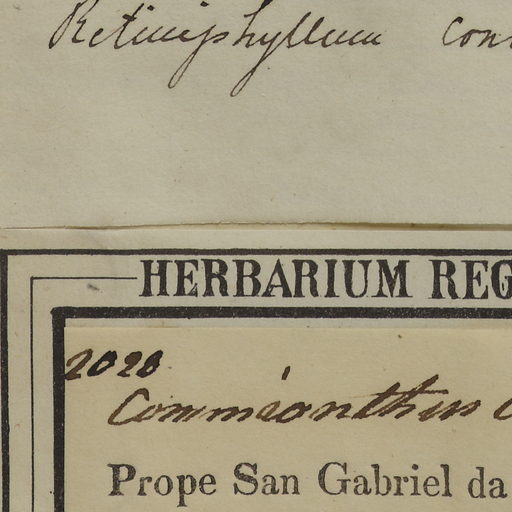 Retiniphyllum con
HERBARIUM REG
2020
Commianthus
Prope San Gabriel da